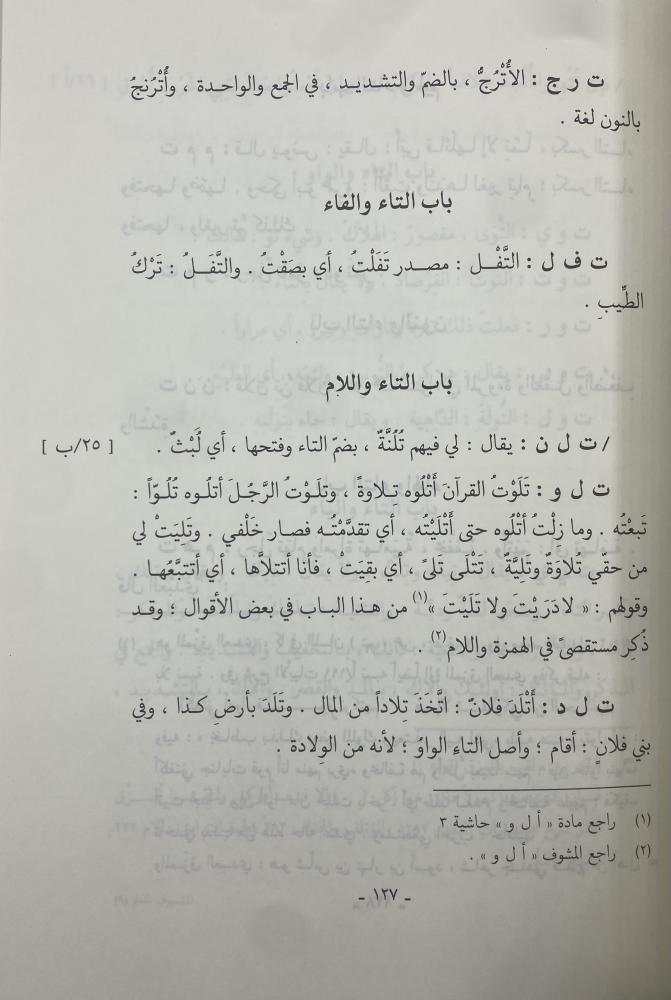 ت ر ج : الأُتْرُجُّ ، بالضمّ والتشديد ، في الجمع والواحدة ، وأُتْرُنجُ
بالنون لغة .
باب التاء والفاء
ت ف ل : التَّفْل : مصدر تَفَلْتُ ، أي بصَقْتُ . والتَّفَلُ : تَرْكُ
الطِّيبِ .
باب التاء واللام
/ ت ل ن : يقال : لي فيهم تُلُنَّةٌ ، بضمّ التاء وفتحها ، أي لُبْثٌ . [ ٢٥/ب ]
ت ل و : تَلَوْتُ القرآنَ أَتْلُوه تِلاوةً ، وتلَوْتُ الرَّجُلَ أتلُوه تُلُوّاً :
تَبعْتُه . وما زِلْتُ أتْلُوه حتى أَتْلَيْتُه ، أي تقدَّمْتُه فصار خَلْفي . وتَلِيَتْ لي
من حقّي تُلاوَةٌ وتَلِيَّةٌ ، تَتْلَى تَلىً ، أي بقِيَتْ ، فأنا أتتلاَّها ، أي أتتبَّعُها .
وقولهم : « لا دَرَيْتَ ولا تَلَيْتَ »(١) من هذا الباب في بعض الأقوال ؛ وقد
ذُكِر مستقصىً في الهمزة واللام(٢) .
ت ل د : أَتْلَدَ فلانٌ : اتَّخَذَ تِلاداً من المال . وتَلَدَ بأرضِ كذا ، وفي
بني فلانٍ : أقام ؛ وأصل التاءِ الواوُ ؛ لأنه من الوِلادة .
(١) راجع مادة « أ ل و » حاشية ٣
(٢) راجع المشوف « أ ل و » .
- ١٢٧ -